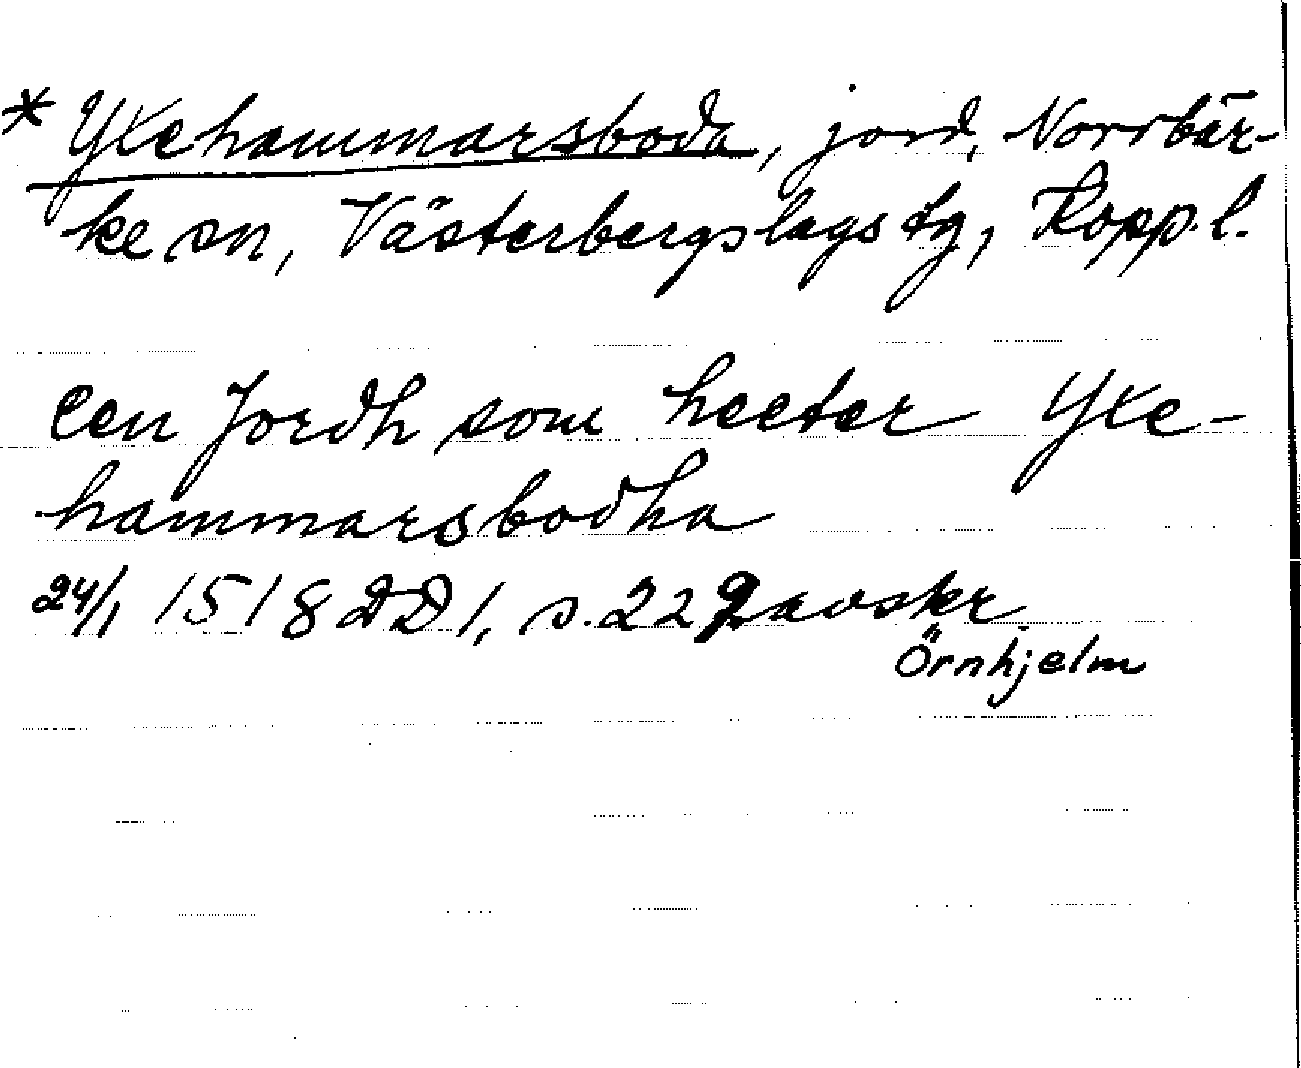 * Yxehammarsboda, jord, Norrbär-
ke sn, Västerbergslags tg, Kopp. l.
een Jordh som heeter Yxe-
hammarsbodha
24/1 1518 DD 1, s. 222 avskr.
Örnhjelm